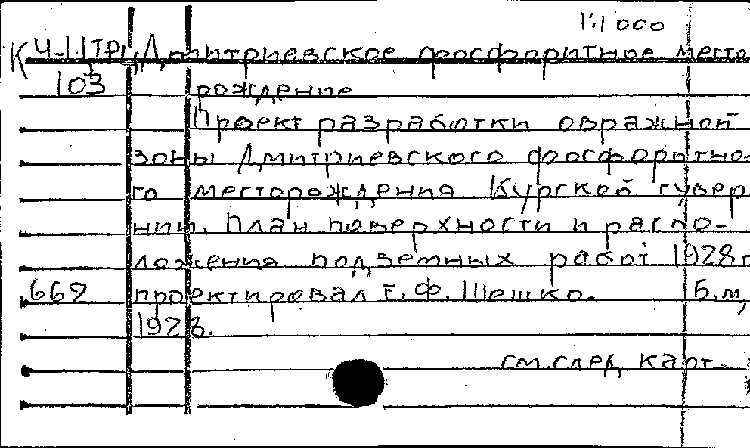 1:1000
К Ч-Ц,ТРЦ Дмитриевское фосфоритное место
103 рождение
Проект разработки овражной
зоны Дмитриевского фосфоритно-
го месторождения Курской губер
нии. План поверхности и распо-
ложения подземных работ 1928г
669 проектировал Е. Ф. Шешко. Б.м,
1928.
см. след карт